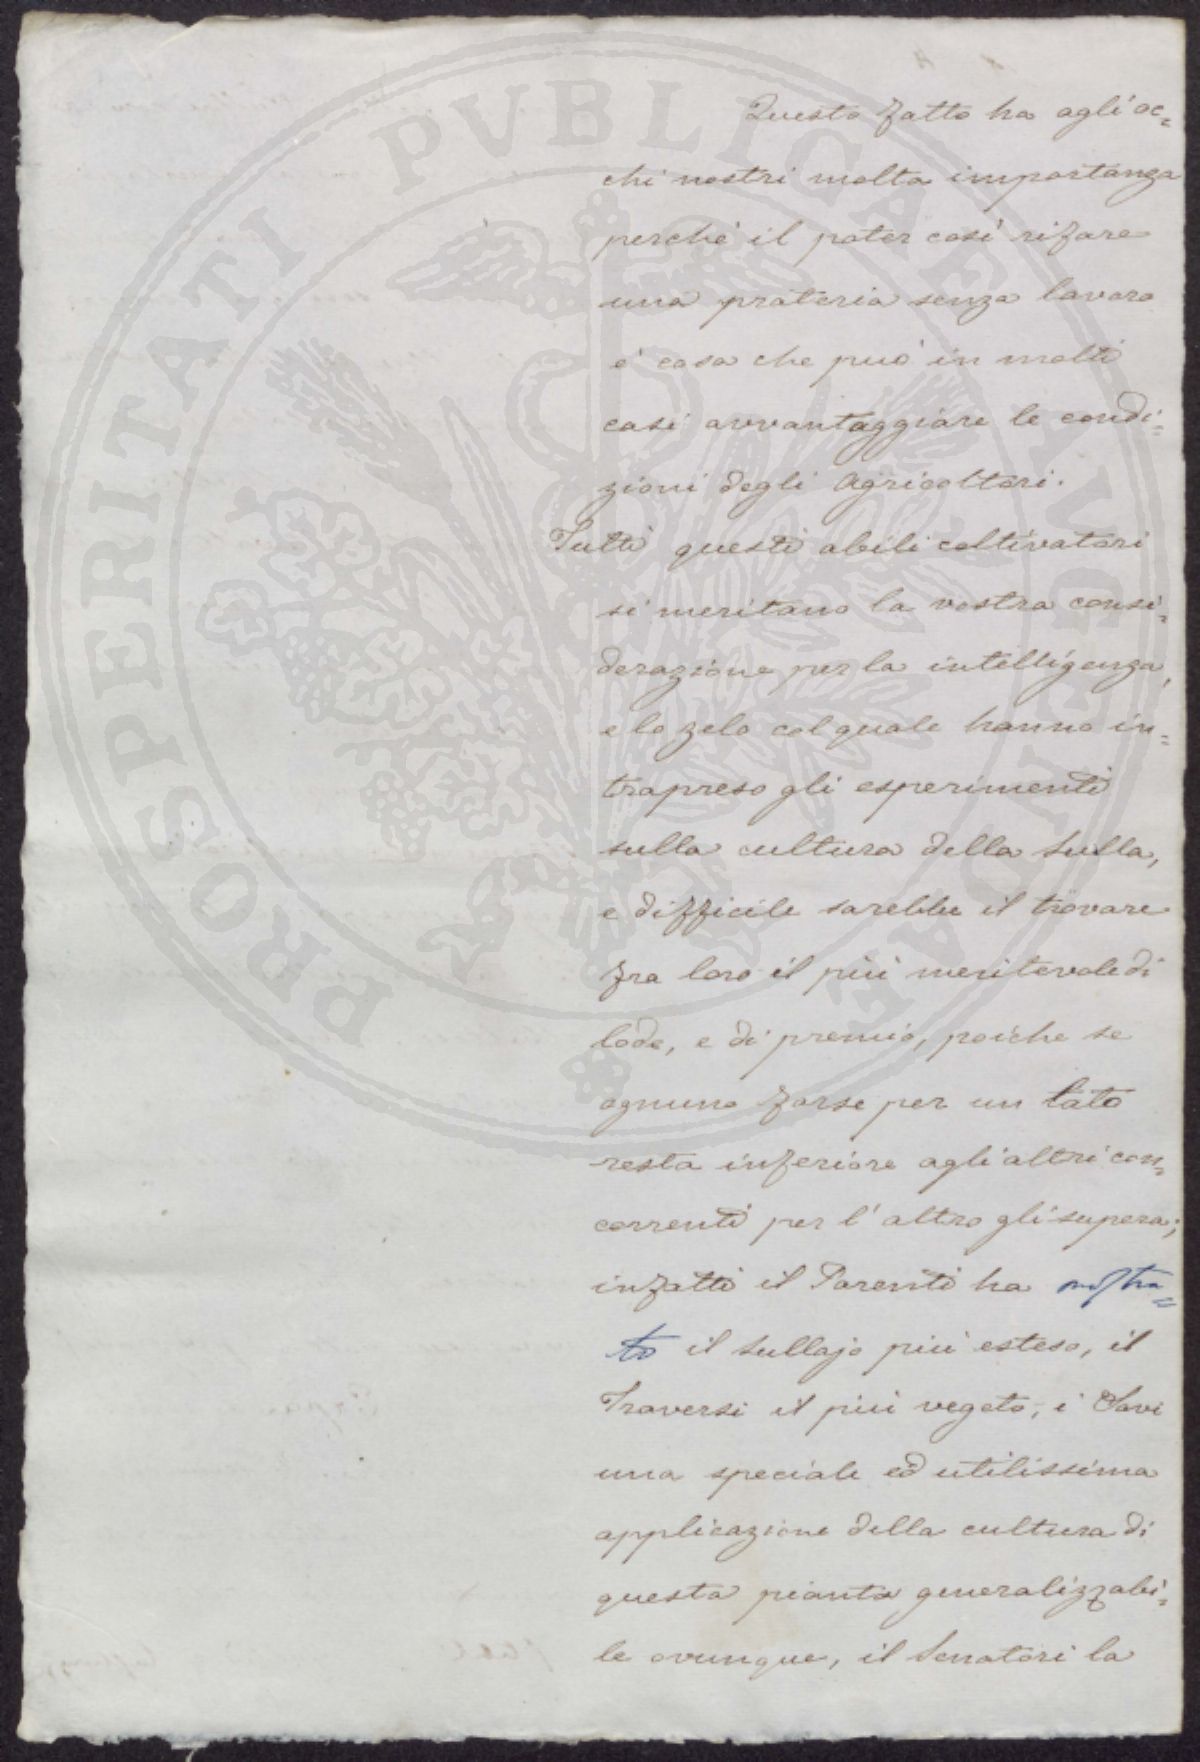 Questo fatto ha agli oc=
chi nostri molta importanza
perchè il poter così rifare
una prateria senza lavoro
è cosa che può in molti
casi avvantaggiare le condi=
zioni degli Agricoltori.
Tutti questi abili coltivatori
si meritano la vostra consi=
derazione per la intelligenza,
e lo zelo col quale hanno in=
trapreso gli esperimenti
sulla cultura della Sulla,
e difficile sarebbe il trovare
fra loro il più meritevole di
lode, e di premio, poichè se
ognuno forse per un lato
resta inferiore agli altri con=
correnti per l'altro gli supera;
infatti il Parenti ha mostra=
to il Sullajo più esteso, il
Traversi il più vegeto, i Savi
una speciale ed utilissima
applicazione della cultura di
questa pianta generalizzabi=
le ovunque, il Senatori la
PROSPERITATI PVBLICAE AVGENDAE